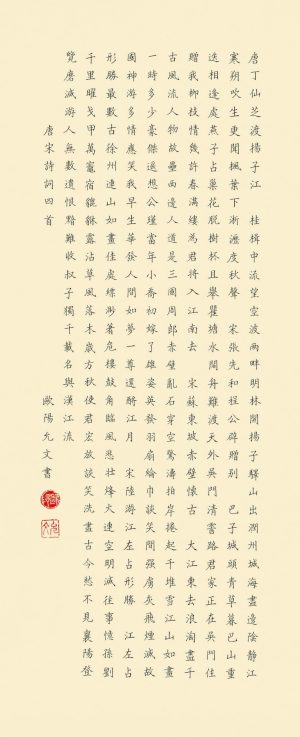 唐丁仙芝渡揚子江 桂楫中流望空波兩畔明林開揚子驛山出潤州城海盡邊陰靜江
寒朔吹生更聞楓葉下淅瀝度秋聲 宋張先和程公辟贈別 巴子城頭青草暮巴山重
迭相逢處燕子占巢花脫樹杯且舉瞿塘水闊舟難渡天外吳門清霅路君家正在吳門住
贈我柳枝情幾許春滿縷為君將入江南去 宋蘇東坡赤壁懷古 大江東去浪淘盡千
古風流人物故壘西邊人道是三國周郎赤壁亂石穿空驚濤拍岸捲起千堆雪江山如畫
一時多少豪傑遙想公瑾當年小喬初嫁了雄姿英發羽扇綸巾談笑間強虜灰飛煙滅故
國神游多情應笑我早生華發人間如夢一尊還酹江月 宋陸游江左占形勝 江左占
形勝最數古徐州連山如畫佳處縹渺著危樓鼓角臨風悲壯烽火連空明滅往事憶孫劉
千里曜戈甲萬竈宿貔貅露沾草風落木歲方秋使君宏放談笑洗盡古今愁不見襄陽登
覽磨滅游人無數遺恨黯難收叔子獨千載名與漢江流
唐宋詩詞四首 歐陽允文書